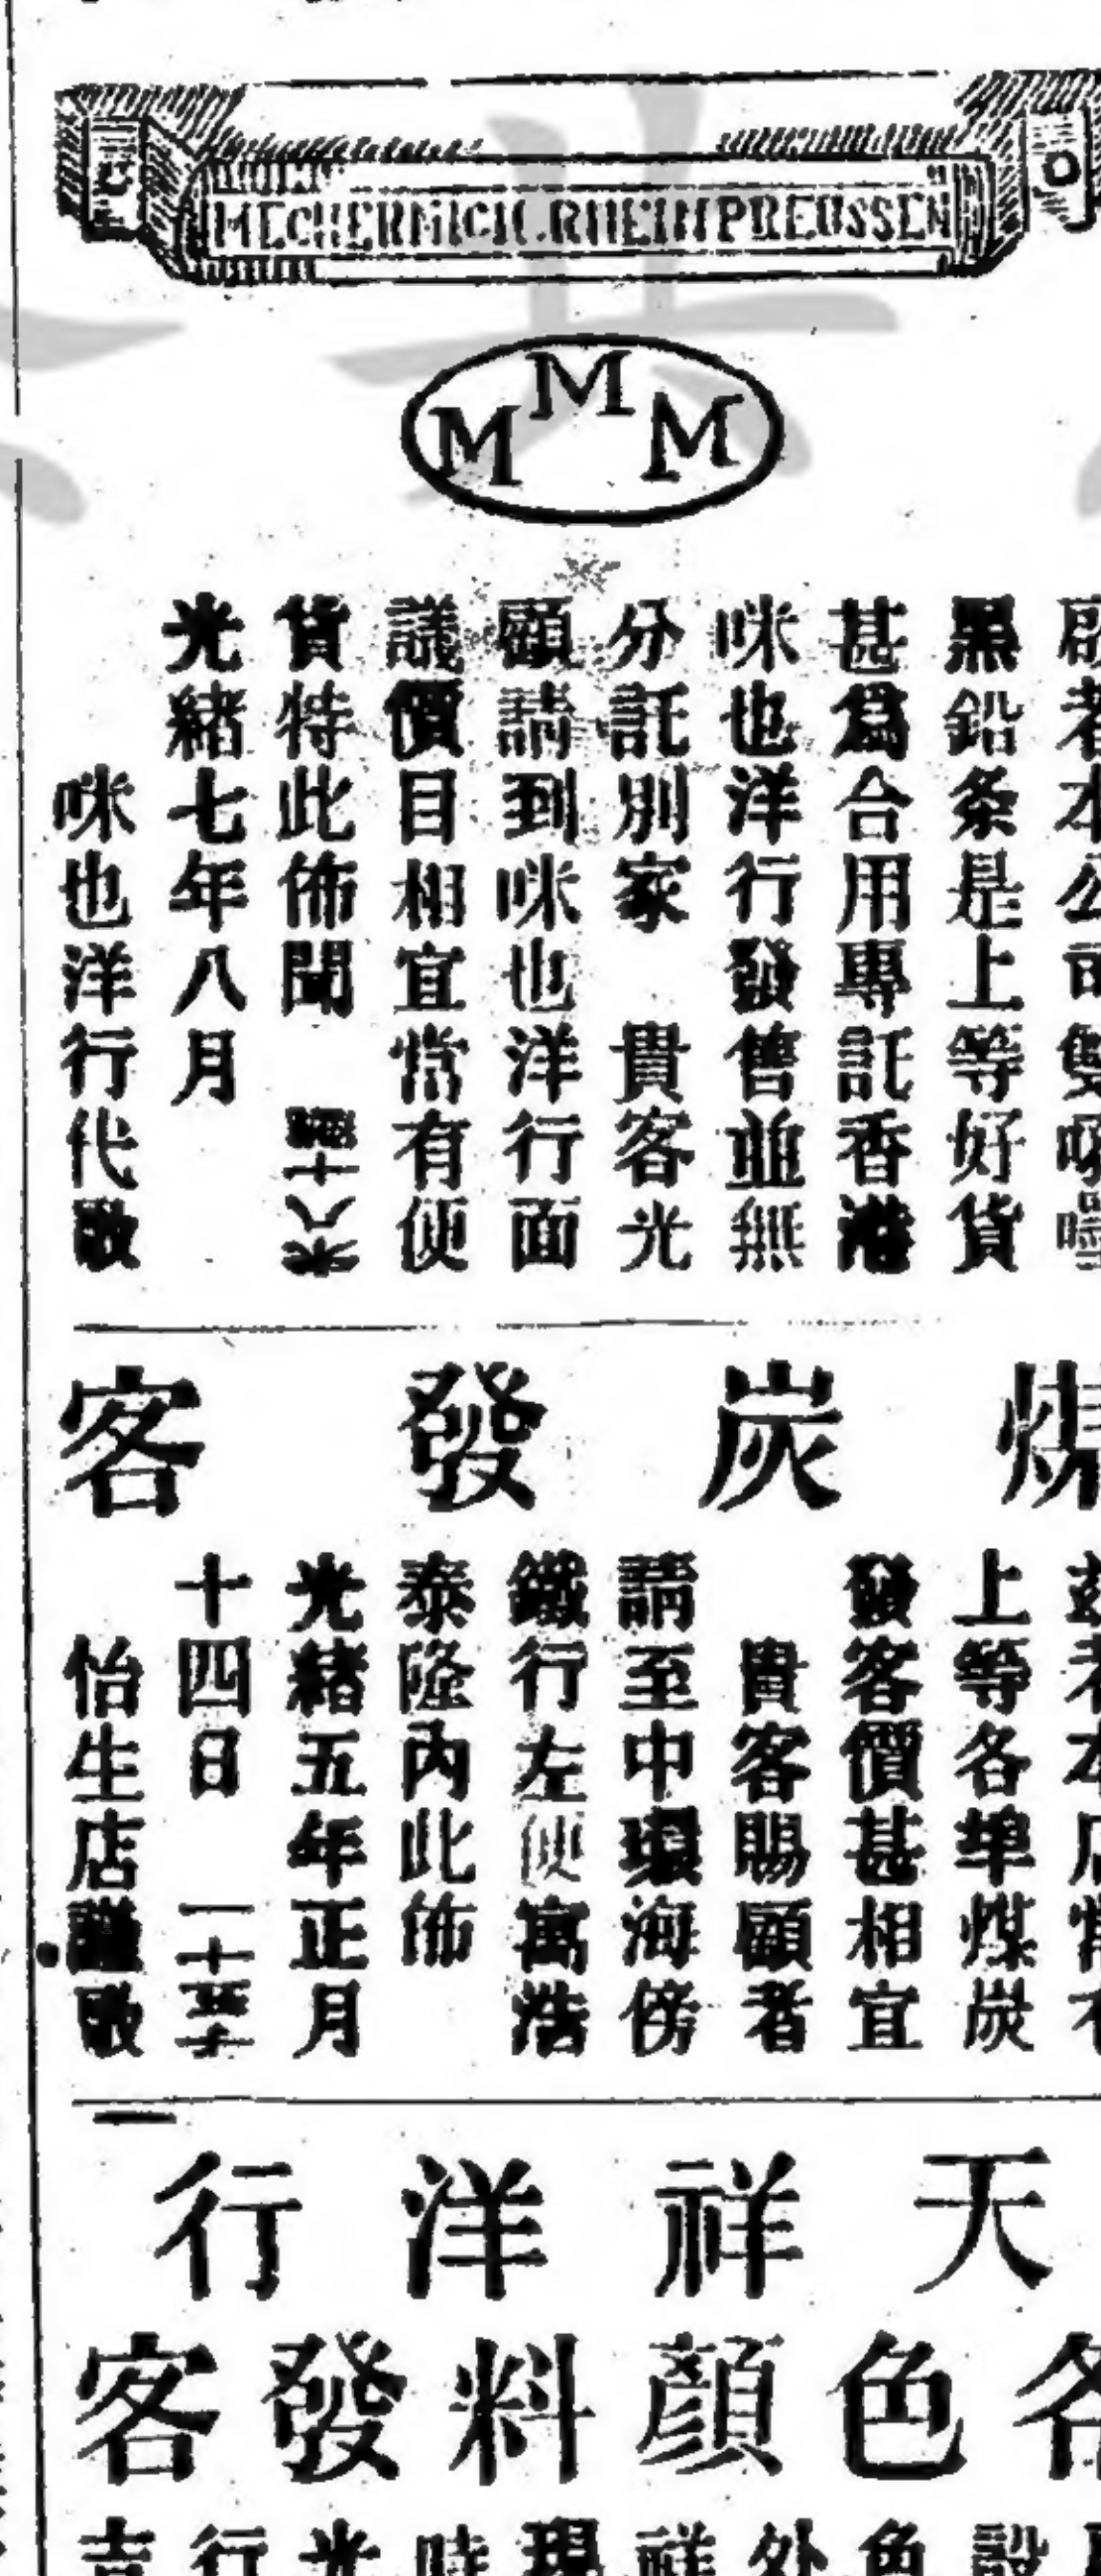 MECHERNICH.RHEINPREUSSEN
M M M
黑鉛条是上等好貨
甚爲合用專託香港
咪也洋行發售並無
分託別家 貴客光
顧請到咪也洋行面
議價目相宜常有便
貨特此佈聞
光緒七年八月
咪也洋行代啟
煤炭發客
上等各埠煤炭
發客價甚相宜
貴客賜顧者
請至中環海傍
鐵行左便寓浩
泰隆內此佈
光緒五年正月
十四日
怡生店謹啟
天祥洋行
各色顏料發客